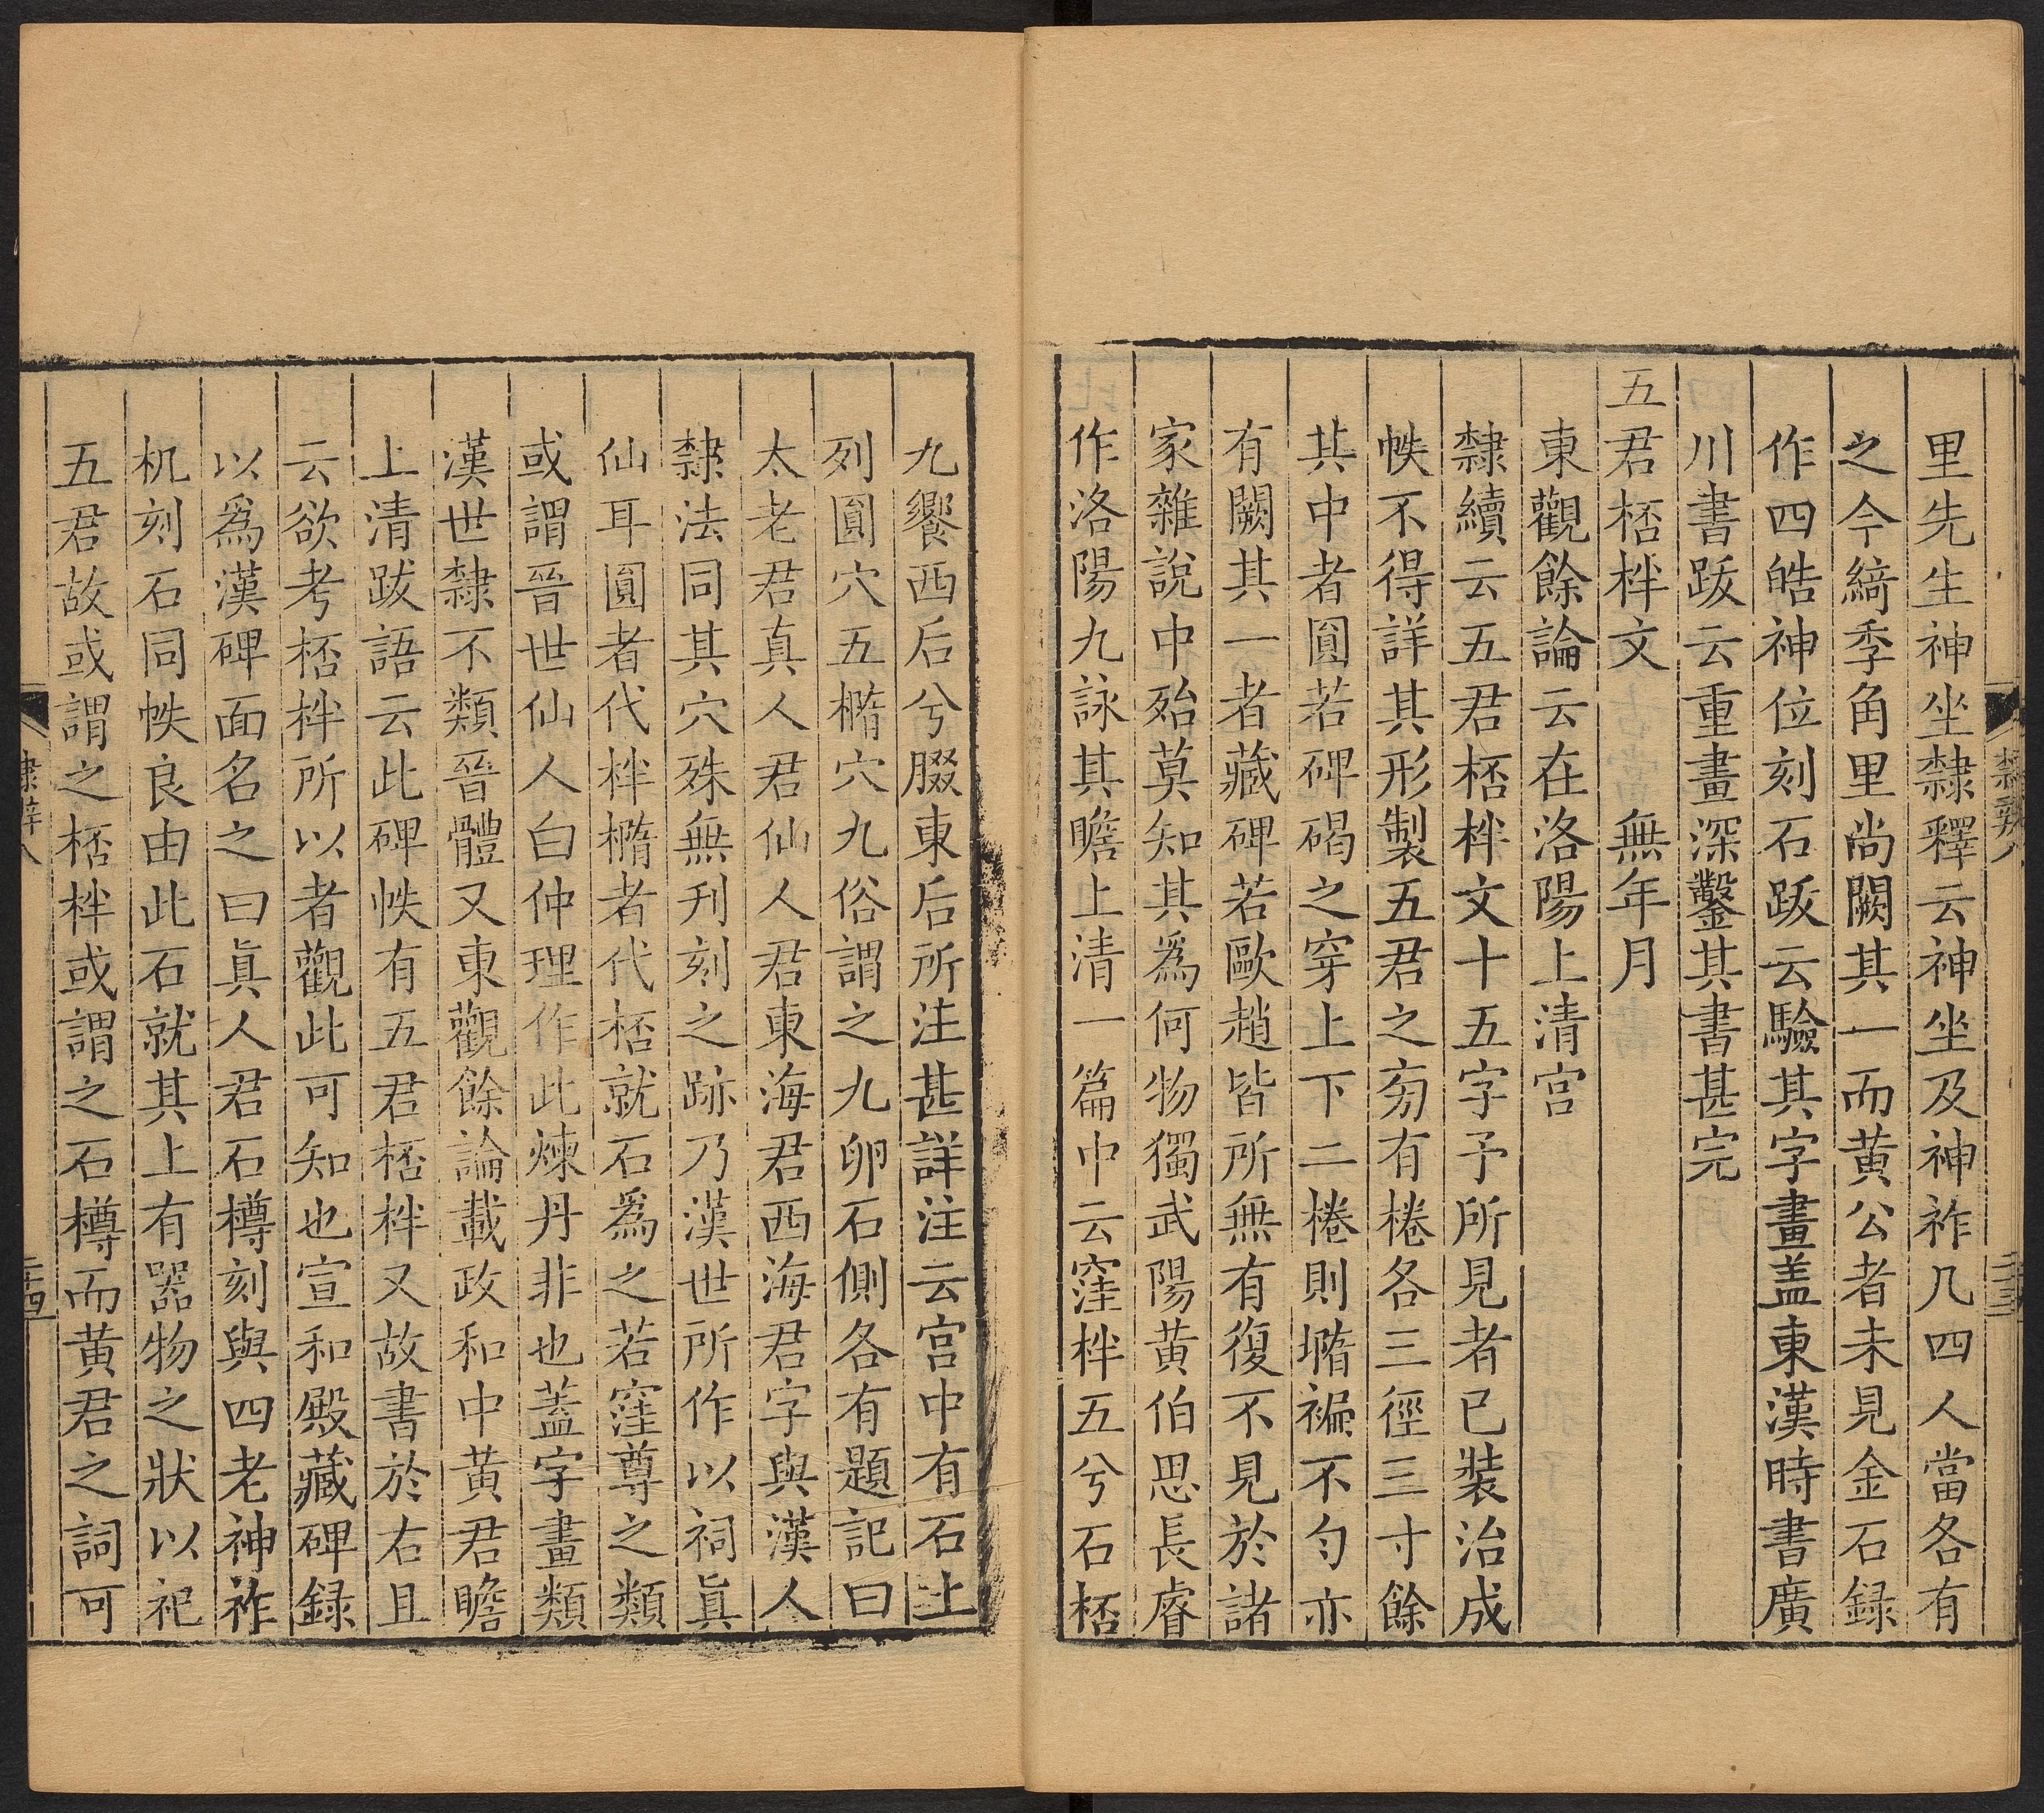 里先生神坐隸釋云神坐及神祚几四人當各有
之今綺季角里尚闕其一而黃公者未見金石録
作四皓神位刻石跋云驗其字畫盖東漢時書廣
川書跋云重畫深鑿其書甚完
五君桮柈文　無年月
東觀餘論云在洛陽上清宮
隸續云五君桮柈文十五字予所見者已裝治成
帙不得詳其形製五君之旁有棬各三徑三寸餘
其中者圓若碑碣之穿上下二棬則墮褊不勻亦
有闕其一者藏碑若歐趙皆所無有復不見於諸
家雜說中殆莫知其爲何物獨武陽黃伯思長睿
作洛陽九詠其瞻上清一篇中云窪柈五兮石桮
九饗西后兮腏東后所注甚詳注云宮中有石上
列圓穴五橢穴九俗謂之九卵石側各有題記曰
太老君真人君仙人君東海君西海君字與漢人
隸法同其穴殊無刋刻之跡乃漢世所作以祠眞
仙耳圓者代柈橢者代桮就石爲之若窪尊之類
或謂晉世仙人白仲理作此煉丹非也蓋字畫類
漢世隸不類晉體又東觀餘論載政和中黃君瞻
上清跋語云此碑帙有五君桮柈又故書於右且
云欲考桮柈所以者觀此可知也宣和殿藏碑録
以爲漢碑面名之曰眞人君石樽刻與四老神祚
机刻石同帙良由此石就其上有器物之狀以祀
五君故或謂之桮柈或謂之石樽而黃君之詞可